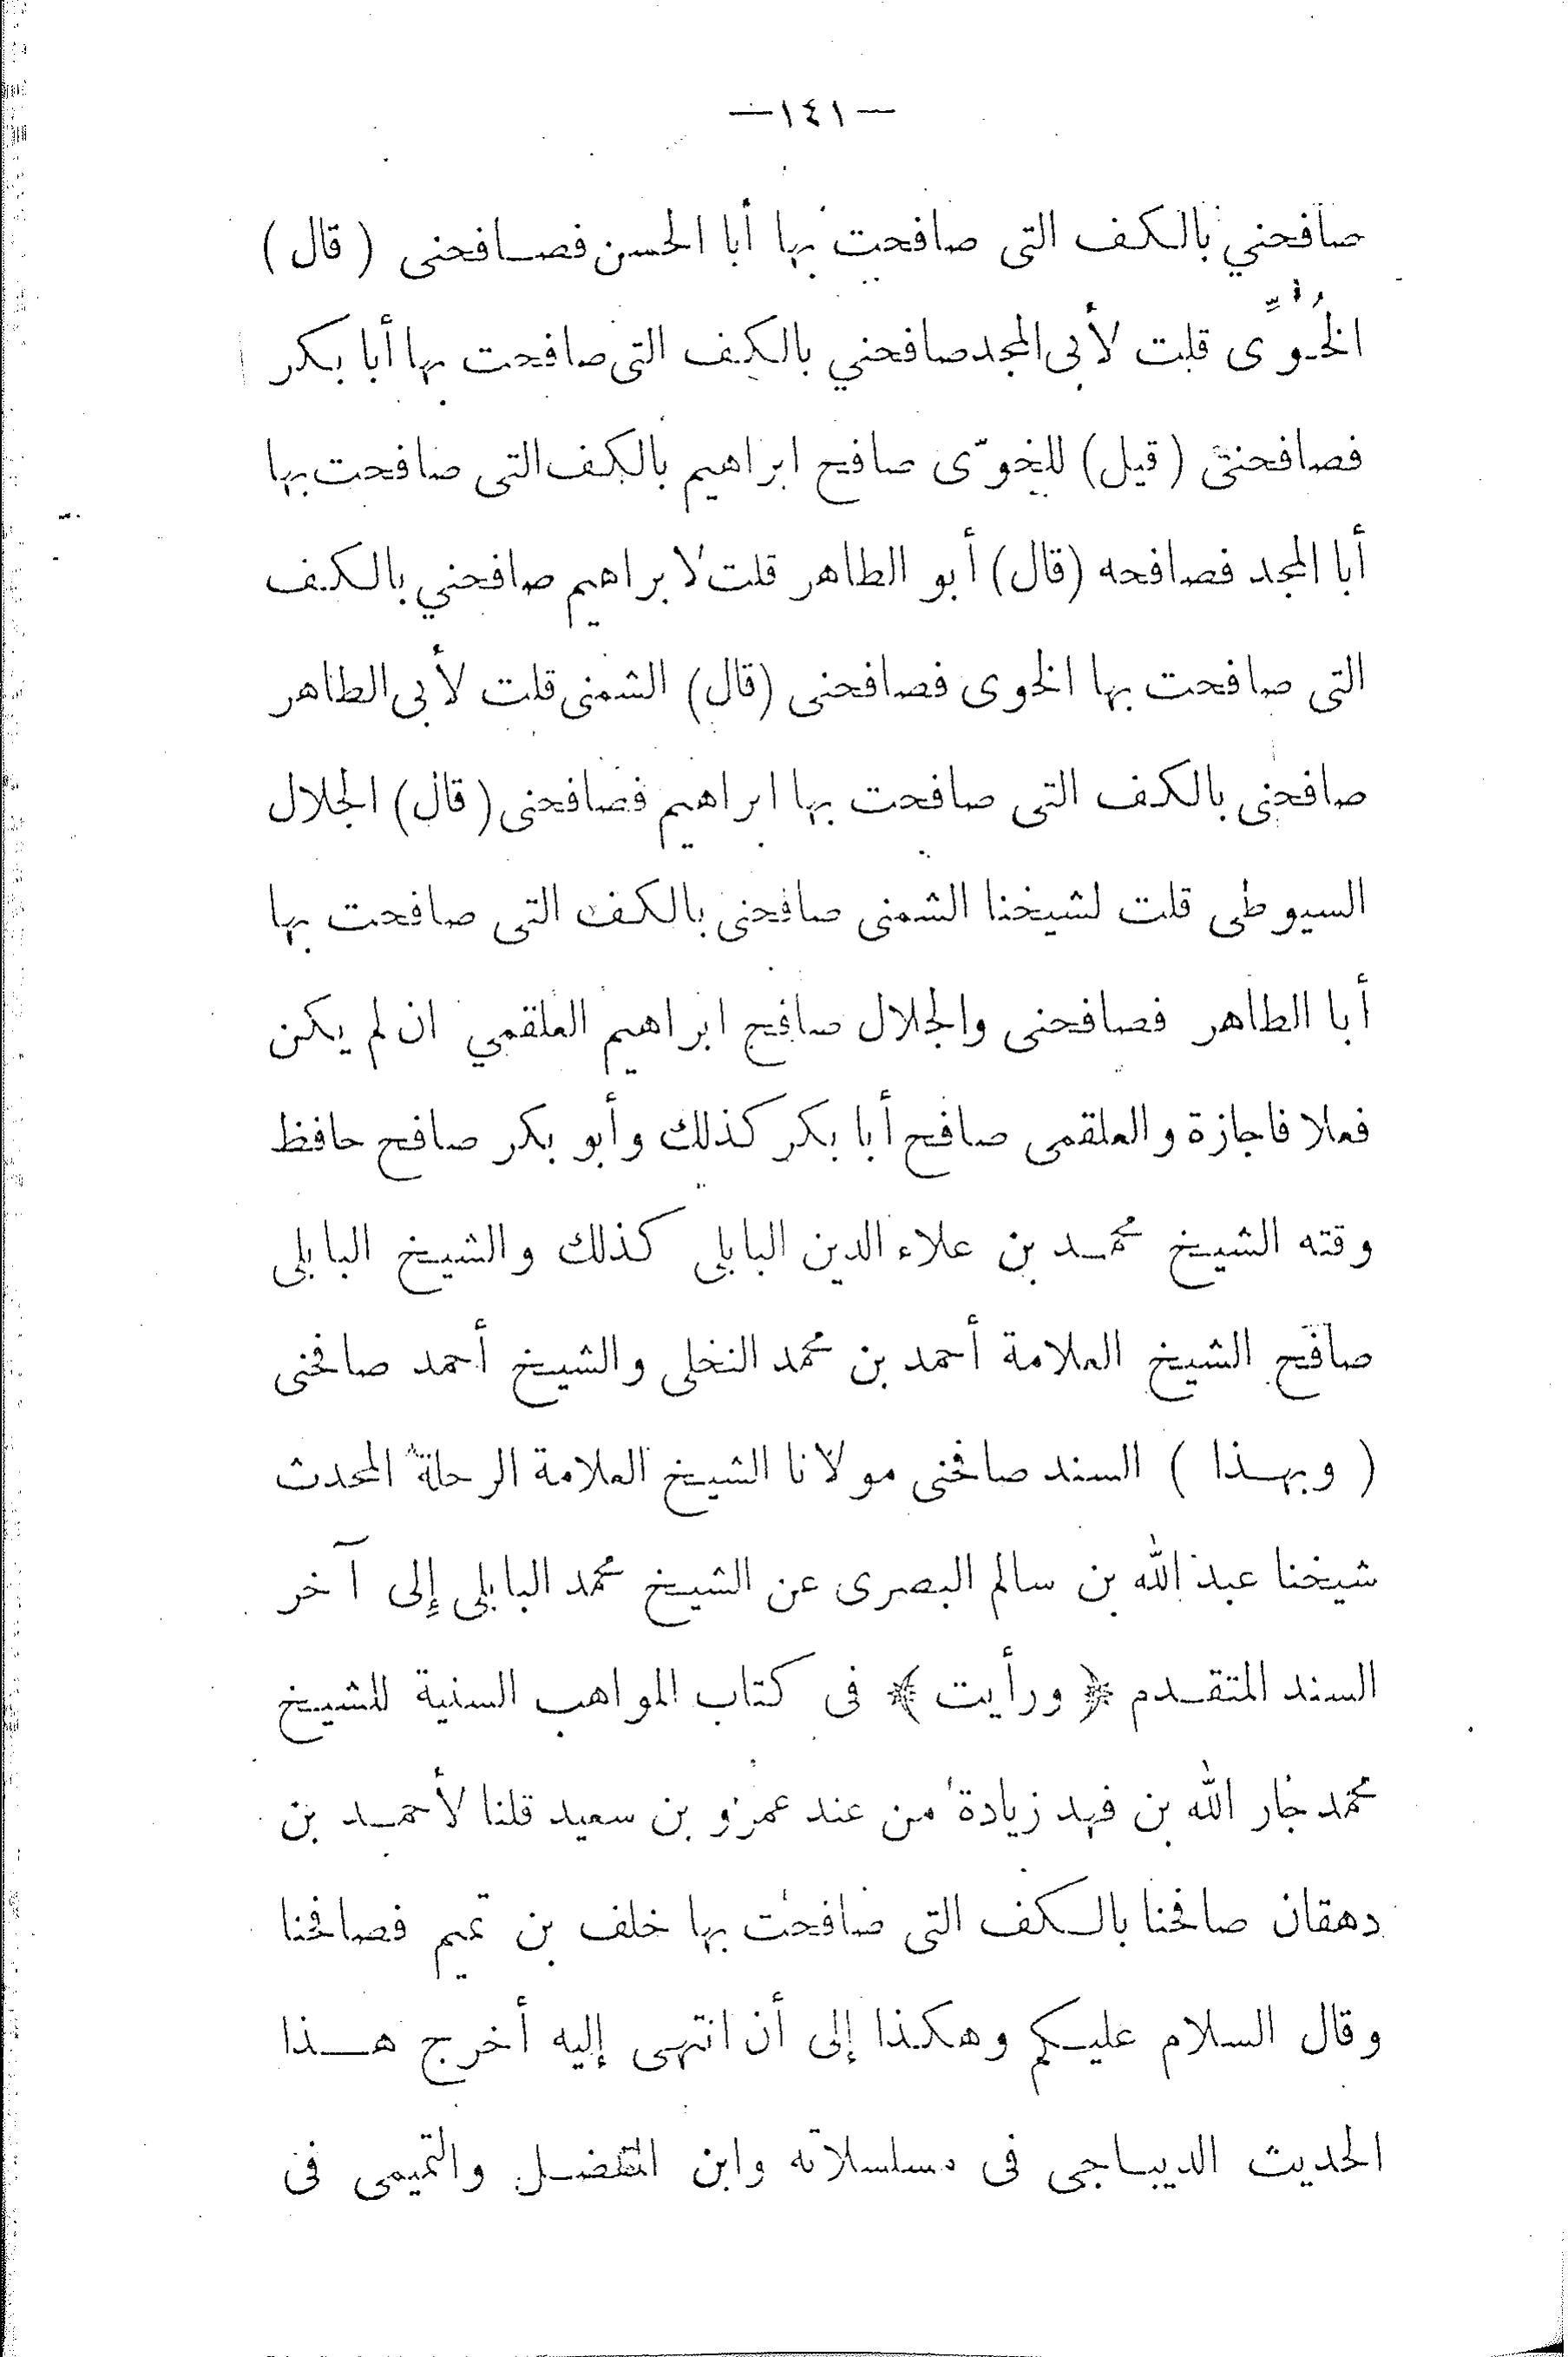 —١٤١—
صافحني بالكف التى صافحت بها أبا الحسن فصافحنى (قال)
الخُوَيِّى قلت لأبى المجد صافحني بالكف التى صافحت بها أبا بكر
فصافحنى (قيل) للخوّى صافح ابراهيم بالكف التى صافحت بها
أبا المجد فصافحه (قال) أبو الطاهر قلت لابراهيم صافحني بالكف
التى صافحت بها الخوى فصافحنى (قال) الشمنى قلت لأبى الطاهر
صافحنى بالكف التى صافحت بها ابراهيم فصافحنى (قال) الجلال
السيوطى قلت لشيخنا الشمنى صافحنى بالكف التى صافحت بها
أبا الطاهر فصافحنى والجلال صافح ابراهيم العلقمي ان لم يكن
فعلا فاجازة والعلقمى صافح أبا بكر كذلك وأبو بكر صافح حافظ
وقته الشيخ محمد بن علاء الدين البابلى كذلك والشيخ البابلى
صافح الشيخ العلامة أحمد بن محمد النخلى والشيخ أحمد صافحنى
(وبهذا) السند صافحنى مولانا الشيخ العلامة الرحلة المحدث
شيخنا عبد الله بن سالم البصرى عن الشيخ محمد البابلى إلى آخر
السند المتقدم ﴿ورأيت﴾ فى كتاب المواهب السنية للشيخ
محمد جار الله بن فهد زيادة من عند عمرو بن سعيد قلنا لأحمد بن
دهقان صافحنا بالكف التى صافحت بها خلف بن تميم فصافحنا
وقال السلام عليكم وهكذا إلى أن انتهى إليه أخرج هذا
الحديث الديباجى فى مسلسلاته وابن المفضل والتميمى فى